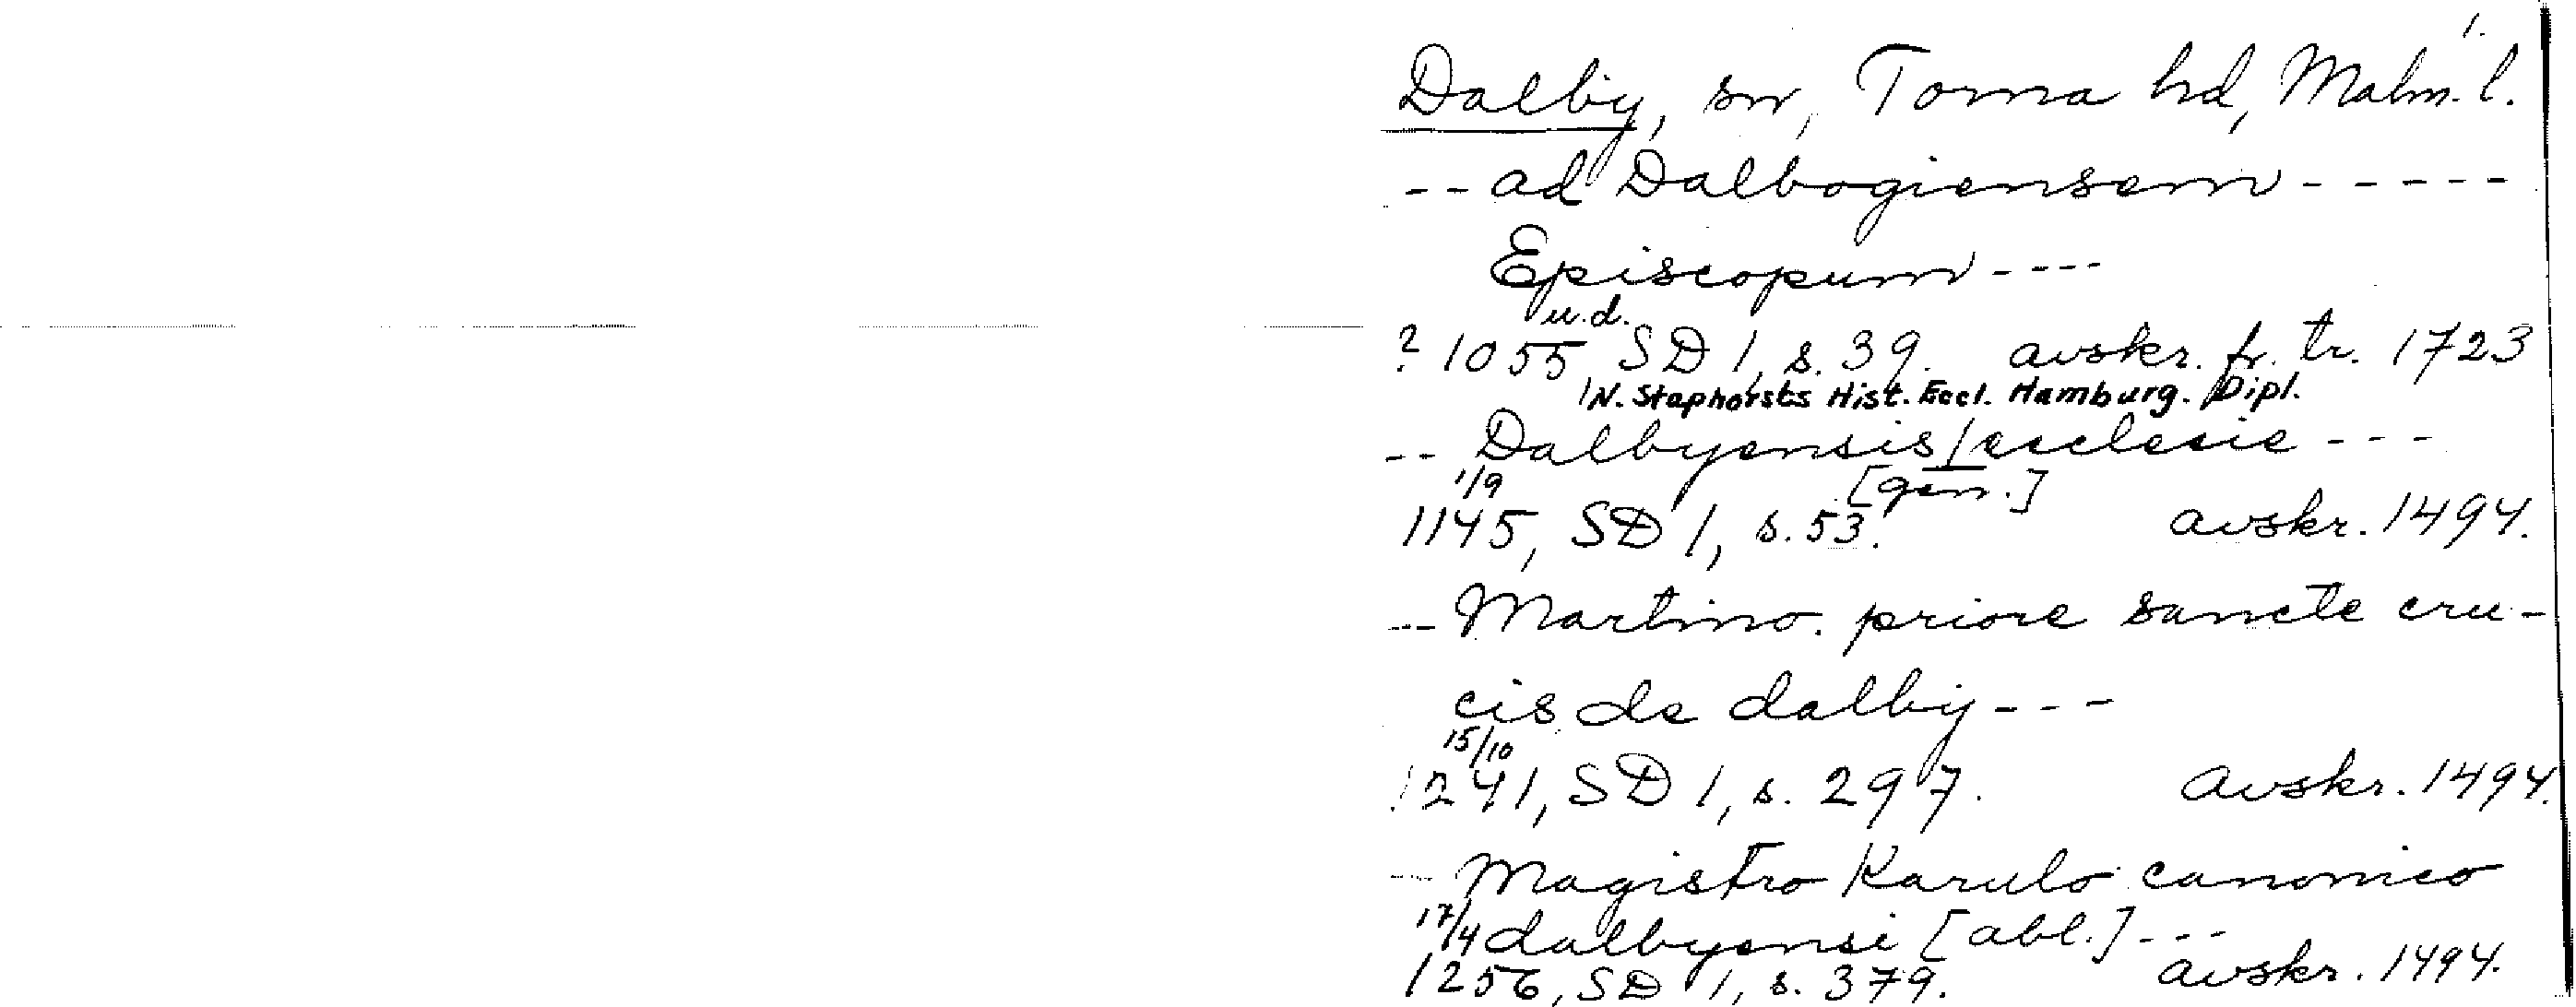 1.
Dalby, sn, Torna hd, Malm. l.
-- ad Dalbogiensem -----
Episcopum ----
u.d.
? 1055, SD 1, s. 39. avskr. fr. tr. 1723
N. Staphorsts Hist. Eccl. Hamburg. Dipl.
-- Dalbyensis / ecclesie ---
1/9 [gen.]
1145, SD 1, s. 53. avskr. 1494.
-- Martino. priore sancte cru-
cis de dalby ---
15/10
1241, SD 1, s. 297. avskr. 1494.
-- Magistro Karulo canonico
17/4 dalbyensi [abl.] ---
1256, SD 1, s. 379. avskr. 1494.